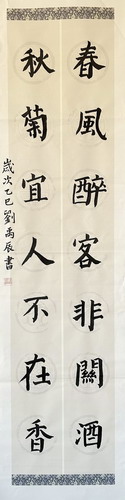 春風醉客非關酒
秋菊宜人不在香
歲次乙巳劉禹辰書